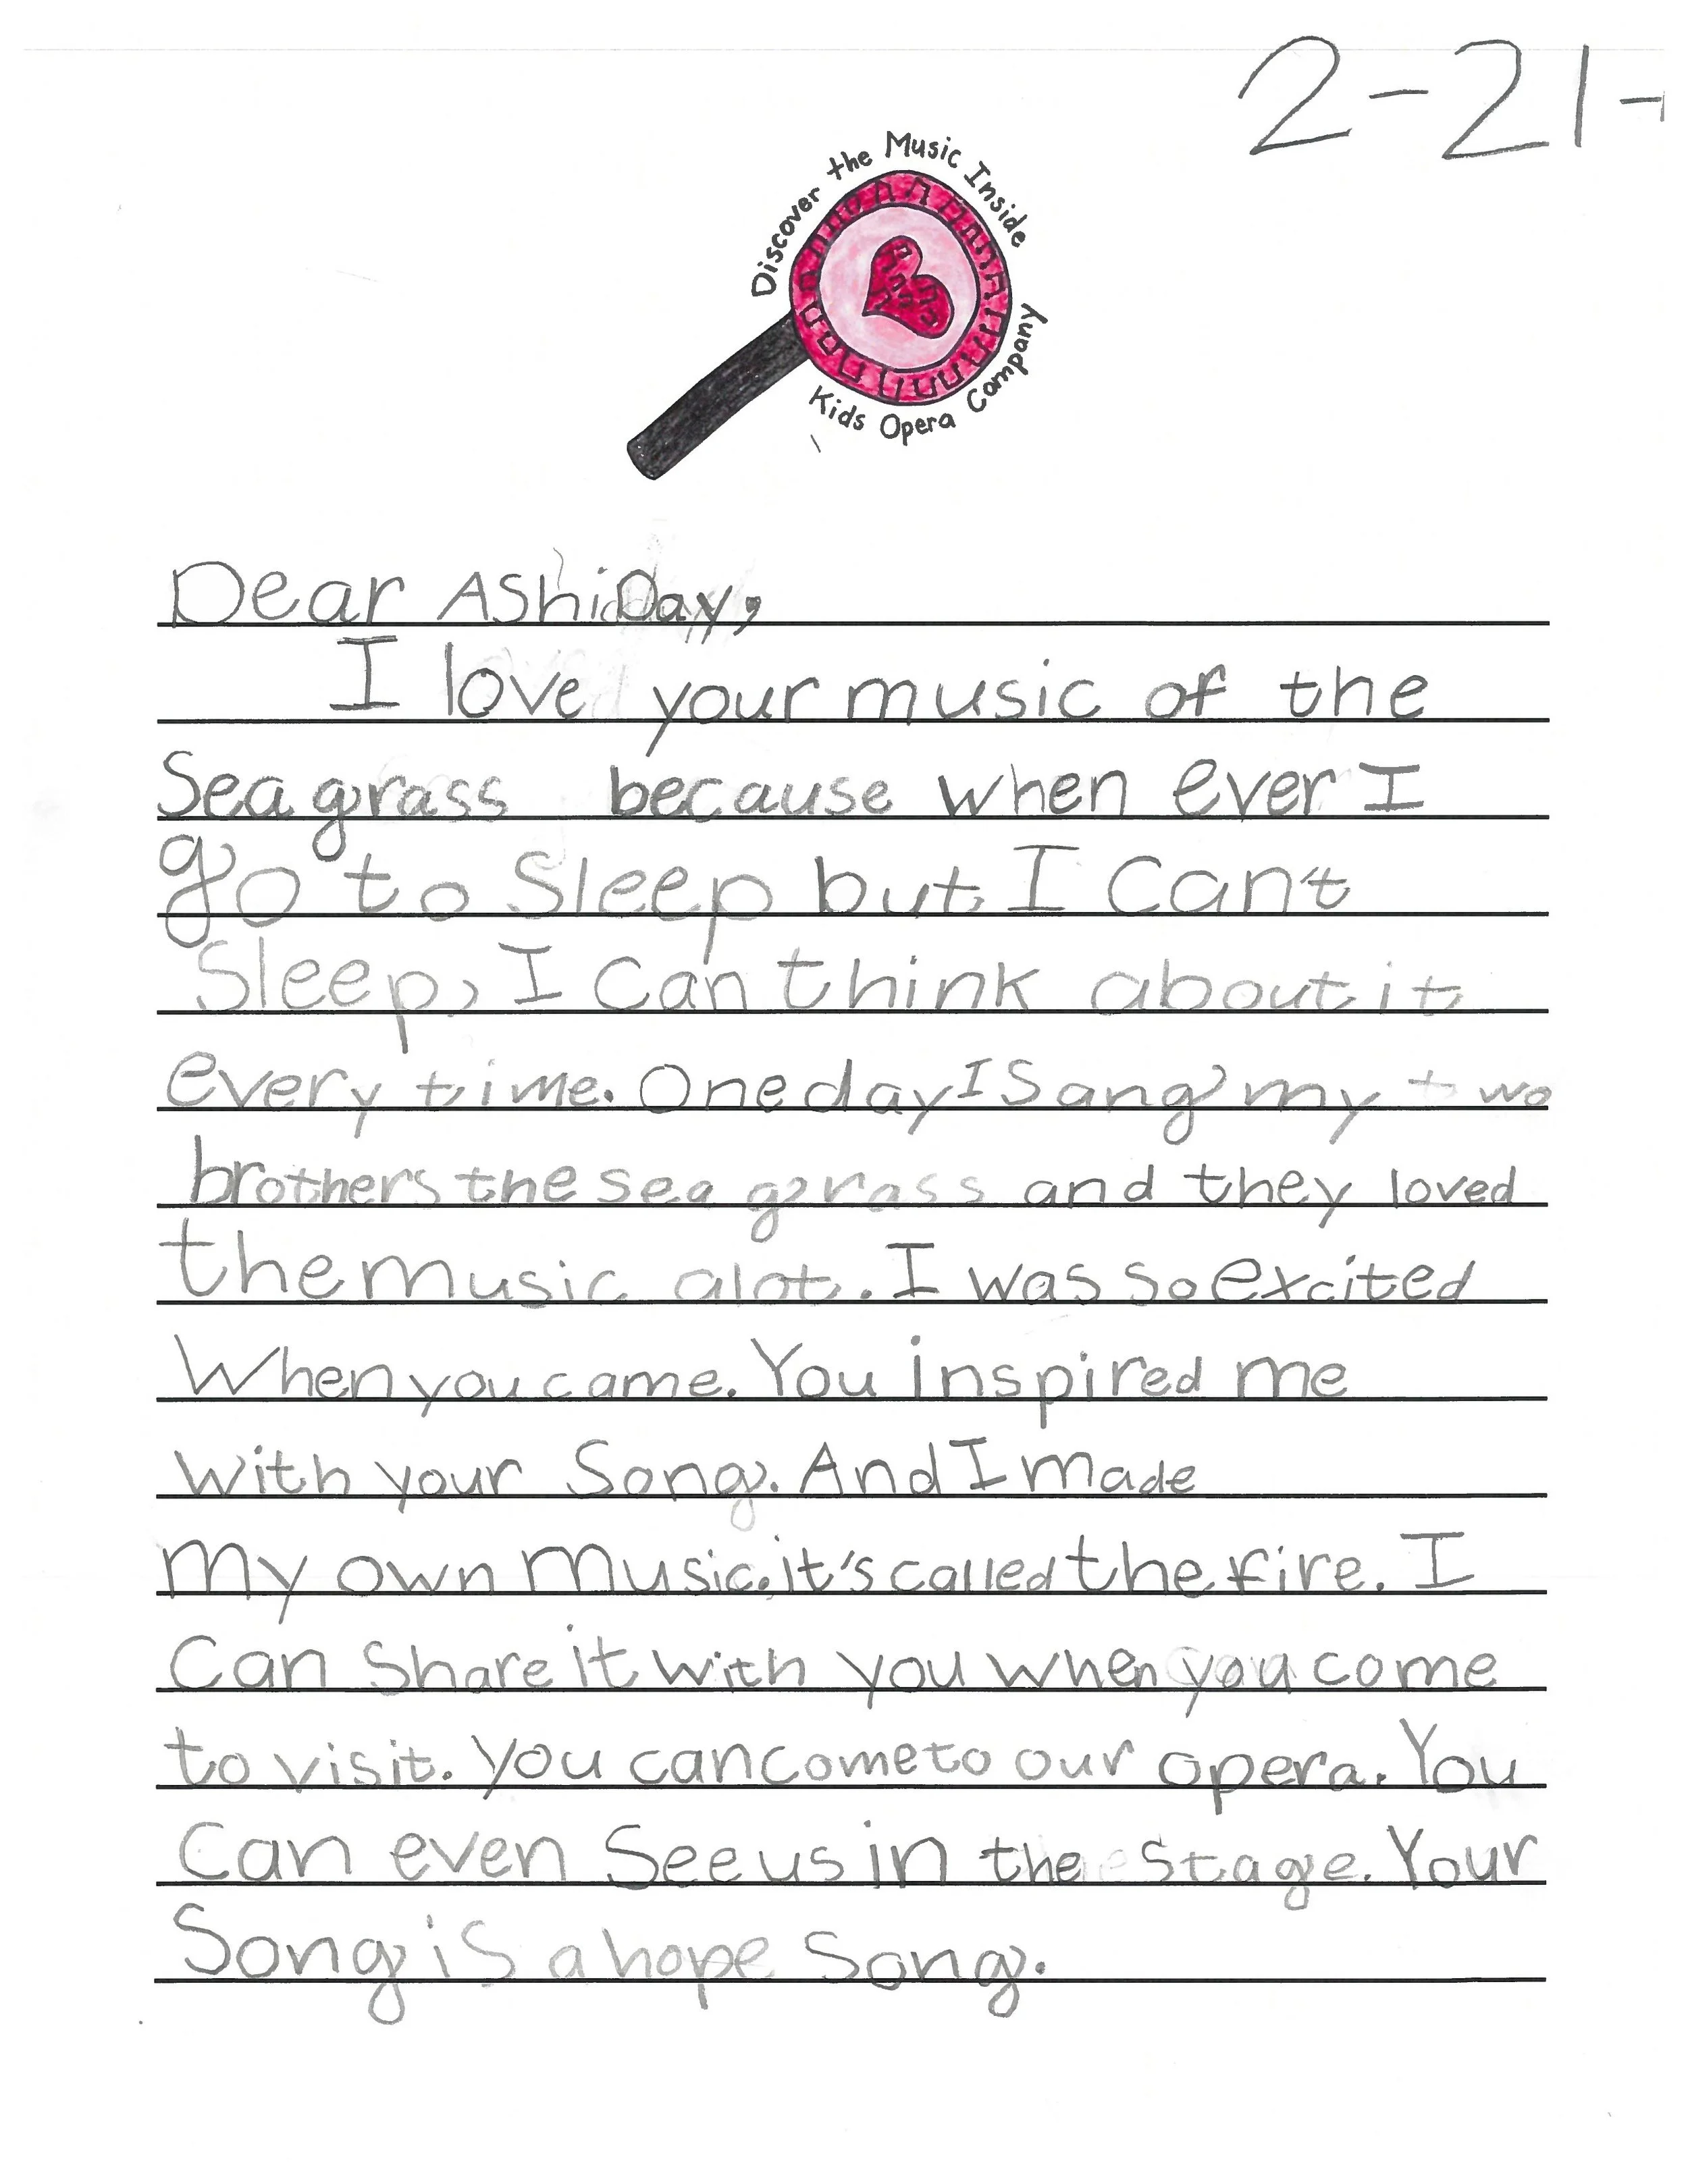 2-21-
Discover the Music Inside
Kids Opera Company
Dear Ashi Day,
I love your music of the
Sea grass because when ever I
go to Sleep but I Can't
Sleep, I Can think about it
every time. One day I Sang my two
brothers the sea grass and they loved
the music alot. I was so excited
When you came. You inspired me
with your Song. And I made
My own Music. it's called the fire. I
Can Share it with you when you come
to visit. You can come to our opera. You
Can even See us in the stage. Your
Song is a hope Song.